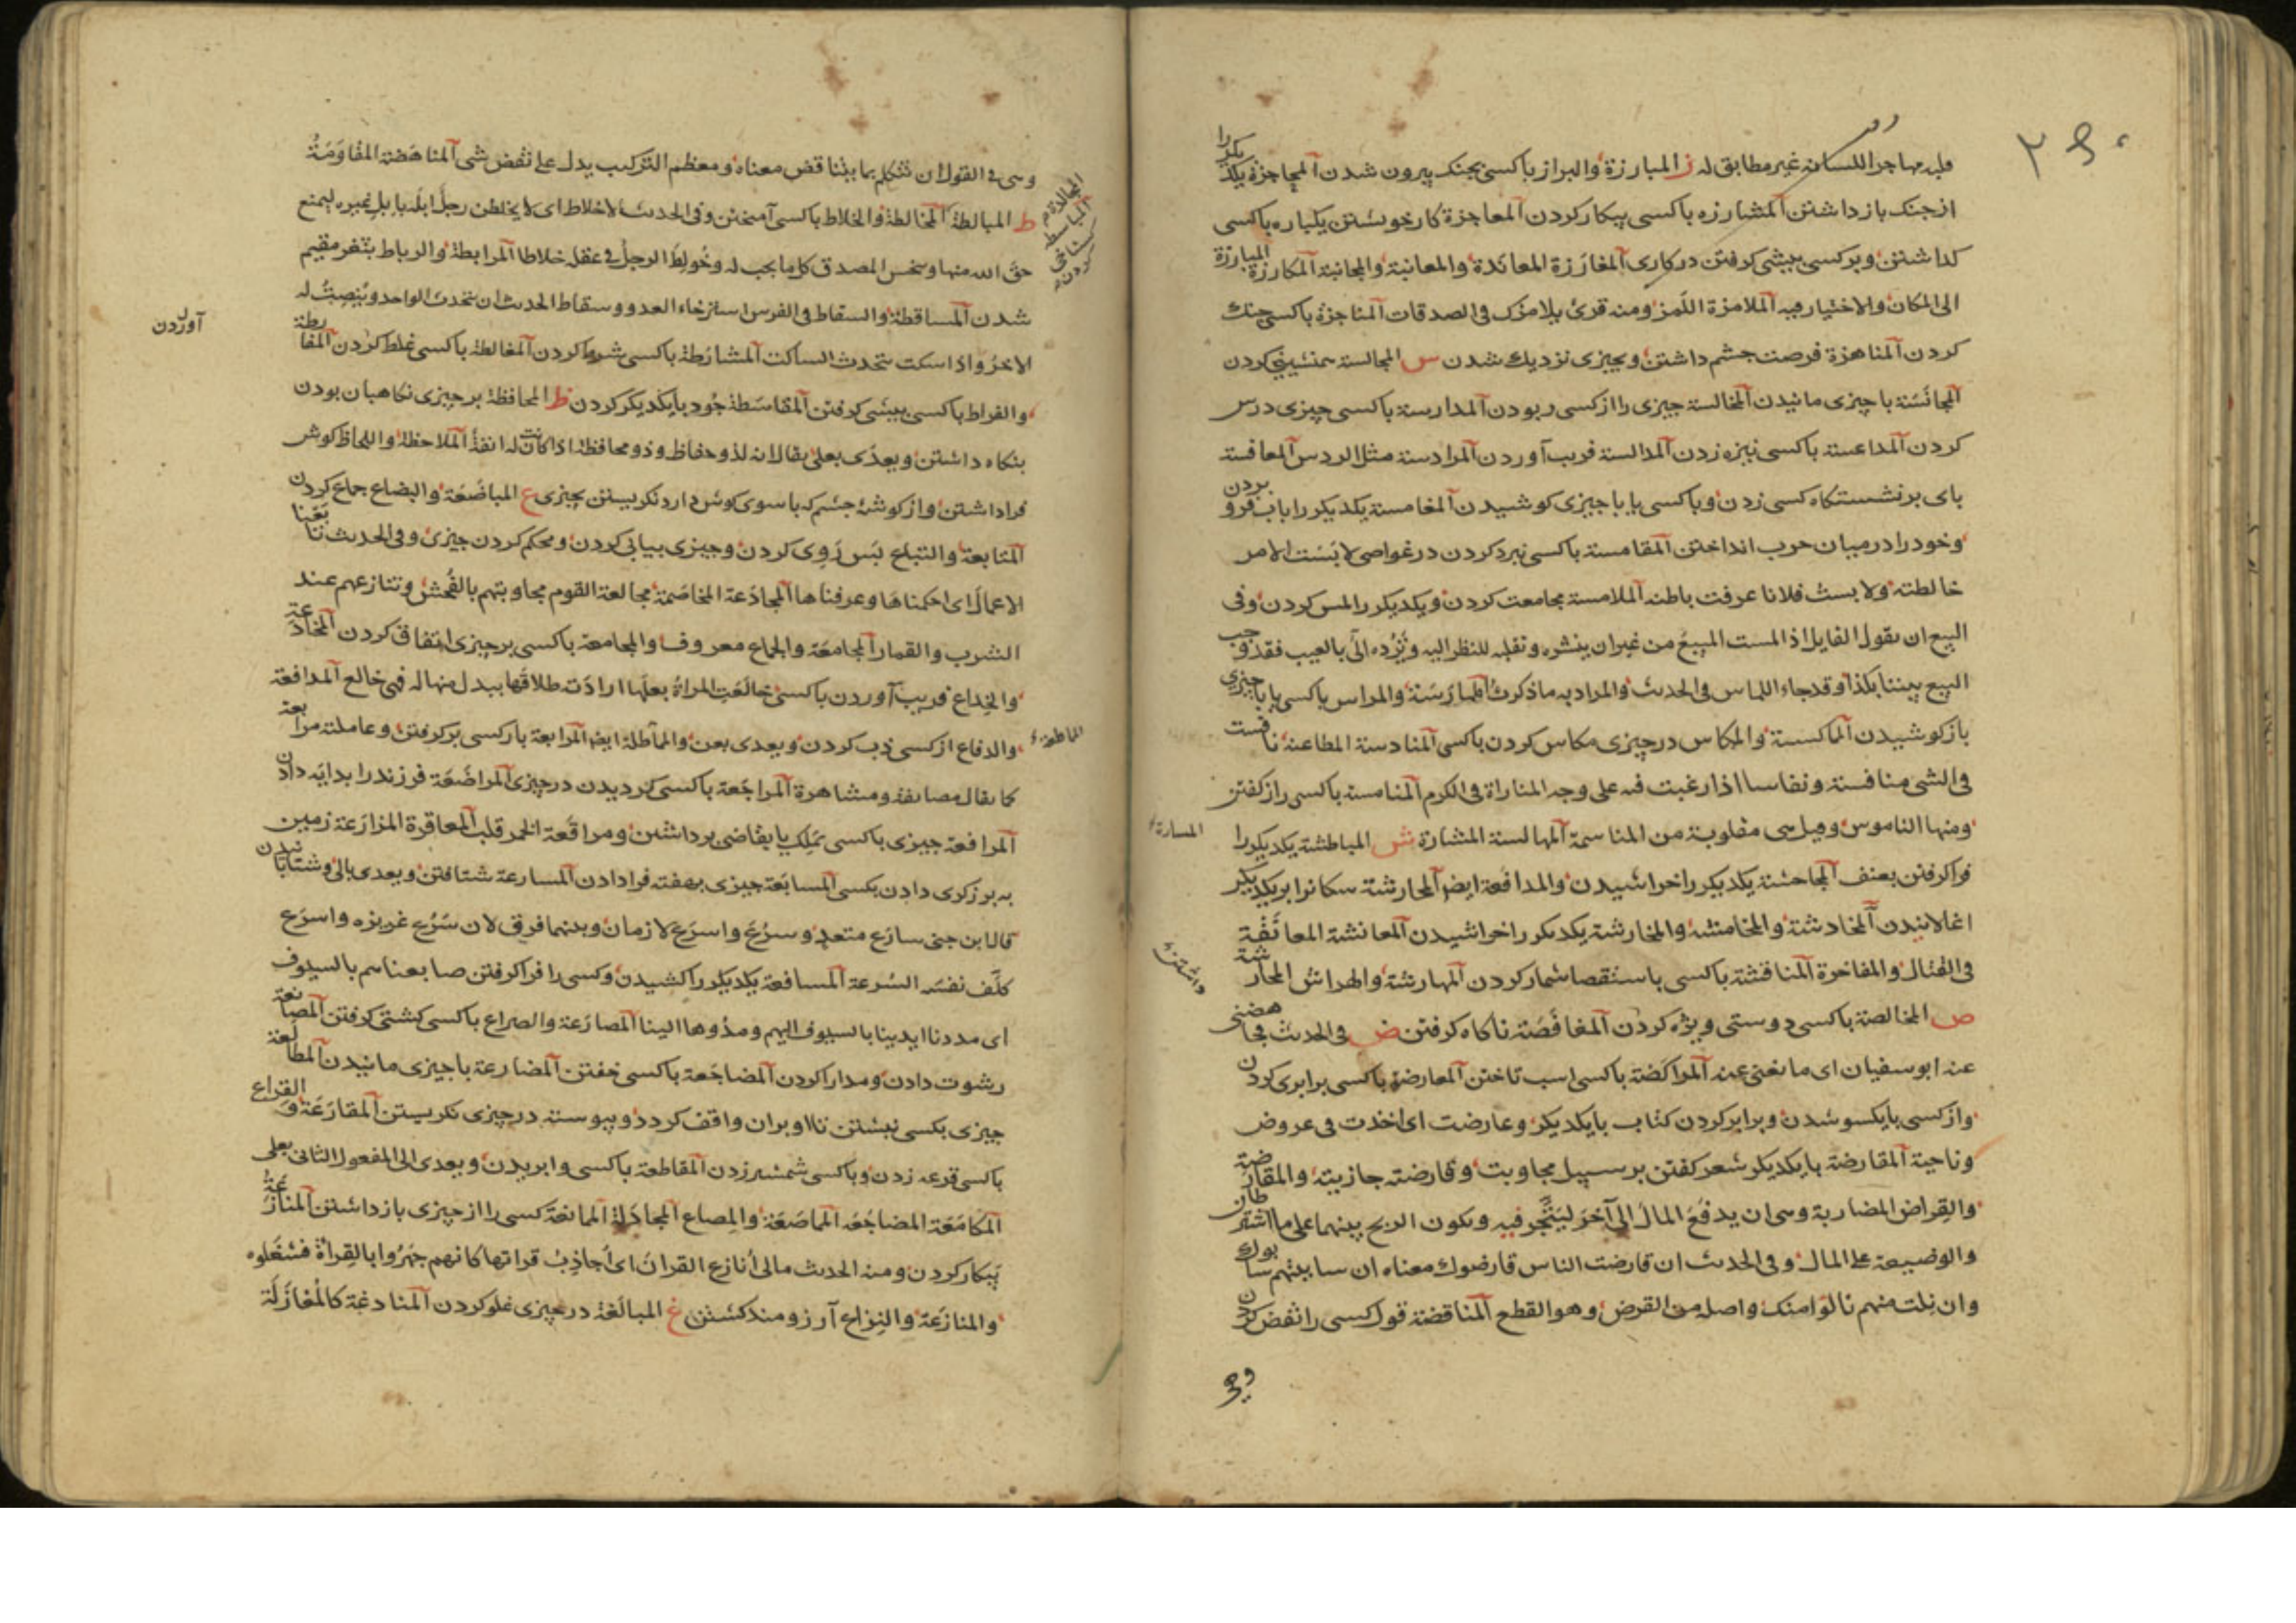 قلبه مهاجرا للسانه غير مطابق له ز المبارزة والبراز باكسى بجنك بيرون شدن المحاجزة يكديكررا
ازجنك بازداشتن المشارزه باكسى پيكار كردن المعاجزة كار خويشتن يكباره باكسى
كذاشتن وبركسى بيشى كرفتن دركارى المغارزة المعاندة والمعانبة والمجانبة المكارزة المبارزة
الى المكان والاختيار فيه الملامزة اللمز ومنه قرئ يلامزك فى الصدقات المناجزة باكسى جنك
كردن المناهزة فرصت چشم داشتن وبچيزى نزديك شدن س المجالسة همنشينى كردن
المجانسة باچيزى مانيدن المخالسة چيزى را ازكسى ربودن المدارسة باكسى چيزى درس
كردن المداعسة باكسى نيزه زدن المدالسة فريب آوردن المرادسة مثل الردس المعافسة
باى برنشستكاه كسى زدن وباكسى يا باچيزى كوشيدن المغامسة يكديكررا باب فرو بردن
وخود را درميان حرب انداختن المقامسة باكسى نبرد كردن درغواصى لابست الامر
خالطته ولابست فلانا عرفت باطنه الملامسة مجامعت كردن ويكديكررا لمس كردن وفى
البيع ان يقول القايل اذا لمست المبيع من غيران ينشره ونقلبه للنظر اليه ويرده الى بالعيب فقد وجب
البيع بيننا بكذا وقد جاء اللماس فى الحديث والمراد به ماذكرت المارسة والمراس باكسى يا باچيزى
بازكوشيدن المماكسة والمكاس درچيزى مكاس كردن باكسى المنادسة المطاعنة نافست
فى الشى منافسة ونفاسا اذا رغبت فيه على وجه المباراة فى الكرم المنامسة باكسى راز كفتن
ومنها الناموس وقيل هى مقلوبة من المناسمة المهالسة المشارة ش المباطشة يكديكررا
المسارة
فراكرفتن بعنف المجاحشة يكديكررا خراشيدن والمدافعة ايض المحارشة سكانرا بريكديكر
اغالانيدن المخادشة والمخامشه والمخارشة يكديكررا خراشيدن المعانشة المعانقة
فى القتال والمفاخرة المناقشة باكسى باستقصا شمار كردن المهارشة والهراش المحارشة
داشتن
ص المخالصة باكسى دوستى ويژه كردن المغافصة ناكاه كرفتن ض فى الحديث فجاهضنى
عنه ابوسفيان اى مانعنى عنه المراكضة باكسى اسب تاختن المعارضة باكسى برابرى كردن
وازكسى بايكسو شدن وبرابر كردن كتاب بايكديكر وعارضت اى اخذت فى عروض
وناحية المقارضة بايكديكر شعر كفتن برسبيل مجاوبت وقارضته جازيته والمقارضة
والقراض المضاربة وهى ان يدفع المال الى آخر ليتجر فيه ويكون الربح بينهما على مااشترطان
والوضيعة على المال وفى الحديث ان قارضت الناس قارضوك معناه ان سابيتهم سابوك
وان نلت منهم نالوا منك واصله من القرض وهو القطع المناقضة قول كسى را نقض كردن
وهى
وهى فى القول ان تتكلم بما يتناقض معناه ومعظم التركيب يدل على نقض شى المناهضة المقاومة
ط المبالطة المخالطة والخلاط باكسى آميختن وفى الحديث لاخلاط اى لا يخلطن رجل ابله بابل غيره ليمنع
حق الله منها وبخس المصدق كل ما يجب له وخولط الرجل فى عقله خلاطا المرابطة والرباط بثغر مقيم
شدن المساقطة والسقاط فى الفرس استرخاء العدو وسقاط الحديث ان يتحدث الواحد وينصت له
الاخر واذا سكت تحدث الساكت المشارطة باكسى شرط كردن المغالطة باكسى غلط كردن المفارطة
آوردن
والفراط باكسى بيشى كرفتن المقاسطة جود بايكديكر كردن ظ المحافظة برچيزى نكاهبان بودن
بنكاه داشتن ويعدى بعلى يقال انه لذو حفاظ وذو محافظة اذا كانت له انفة الملاحظة واللحاظ كوش
فراداشتن وازكوشۀ چشم كه باسوى كوش دارد نكريستن بچيزى ع المباضعة والبضاع جماع كردن
المتابعة والتباع پس روى كردن وچيزى بياپى كردن ومحكم كردن چيزى وفى الحديث تابعنا
الاعمال اى احكمناها وعرفناها المجادعة المخاصمة مجالعة القوم مجاوبتهم بالفحش وتنازعهم عند
الشرب والقمار المجامعة والجماع معروف والمجامعة باكسى برچيزى اتفاق كردن المخادعة
والخداع فريب آوردن باكسى خالعت المراة بعلها ارادت طلاقها ببدل منها له فهى خالع المدافعة
والدفاع ازكسى ذب كردن ويعدى بعن والمماطلة ايض المرابعة باركسى بركرفتن وعاملته مرابعة
كما يقال مصايفة ومشاهرة المراجعة باكسى كرديدن درچيزى المراضعة فرزند را بدايه دادن
المرافعة چيزى باكسى بملك يا بقاضى برداشتن ومراقعة الخمر قلب المعاقرة المزارعة زمين
به برزكرى دادن بكسى المسابعة چيزى بهفته فرادادن المسارعة شتافتن ويعدى بالى وشتابانيدن
قال ابن جنى سارع متعد وسرع واسرع لازمان وبينهما فرق لان سرع غريزه واسرع
كلف نفسه السرعة المسافعة يكديكررا كشيدن وكسى را فراكرفتن صابعناهم بالسيوف
اى مددنا ايدينا بالسيوف اليهم ومدوها الينا المصارعة والصراع باكسى كشتى كرفتن المصانعة
رشوت دادن ومدارا كردن المضاجعة باكسى خفتن المضارعة باچيزى مانيدن المطالعة
چيزى بكسى نبشتن تا او بران واقف كردد وپيوسته درچيزى نكريستن المقارعة والقراع
باكسى قرعه زدن وباكسى شمشير زدن المقاطعة باكسى وابريدن ويعدى الى المفعول الثانى بعلى
المكامعة المضاجعه المماصعة والمصاع المجادلة الممانعة كسى را ازچيزى بازداشتن المنازعة
پيكار كردن ومنه الحديث مالى انازع القران اى اجاذب قراتها كانهم جهروا بالقراة فشغلوه
والمنازعة والنزاع آرزومند كشتن غ المبالغة درچيزى غلو كردن المنادغة كالمغازلة